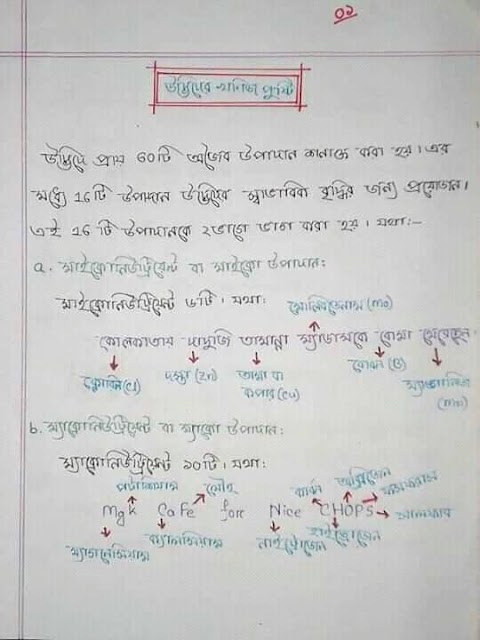 ০১
উদ্ভিদের খনিজ পুষ্টি
উদ্ভিদে প্রায় ৬০টি অজৈব উপাদান শনাক্ত করা হয়। এর
মধ্যে ১৬টি উপাদান উদ্ভিদের স্বাভাবিক বৃদ্ধির জন্য প্রয়োজন।
এই ১৬ টি উপাদানকে ২ভাগে ভাগ করা হয়। যথা:-
a. মাইক্রোনিউট্রিয়েন্ট বা মাইক্রো উপাদান:
মাইক্রোনিউট্রিয়েন্ট ৬টি। যথা:
মোলিবডেনাম (Mo)
কোলকাতার দাদুজি তামান্না ম্যাডামকে বোমা মেরেছেন
ক্লোরিন (Cl) দস্তা (Zn) তামা বা কপার (Cu) বোরন (B) ম্যাঙ্গানিজ (Mn)
b. ম্যাক্রোনিউট্রিয়েন্ট বা ম্যাক্রো উপাদান:
ম্যাক্রোনিউট্রিয়েন্ট ১০টি। যথা:
পটাশিয়াম লৌহ কার্বন অক্সিজেন ফসফরাস
Mgk CaFe for Nice CHOPS সালফার
ম্যাগনেসিয়াম ক্যালসিয়াম নাইট্রোজেন হাইড্রোজেন